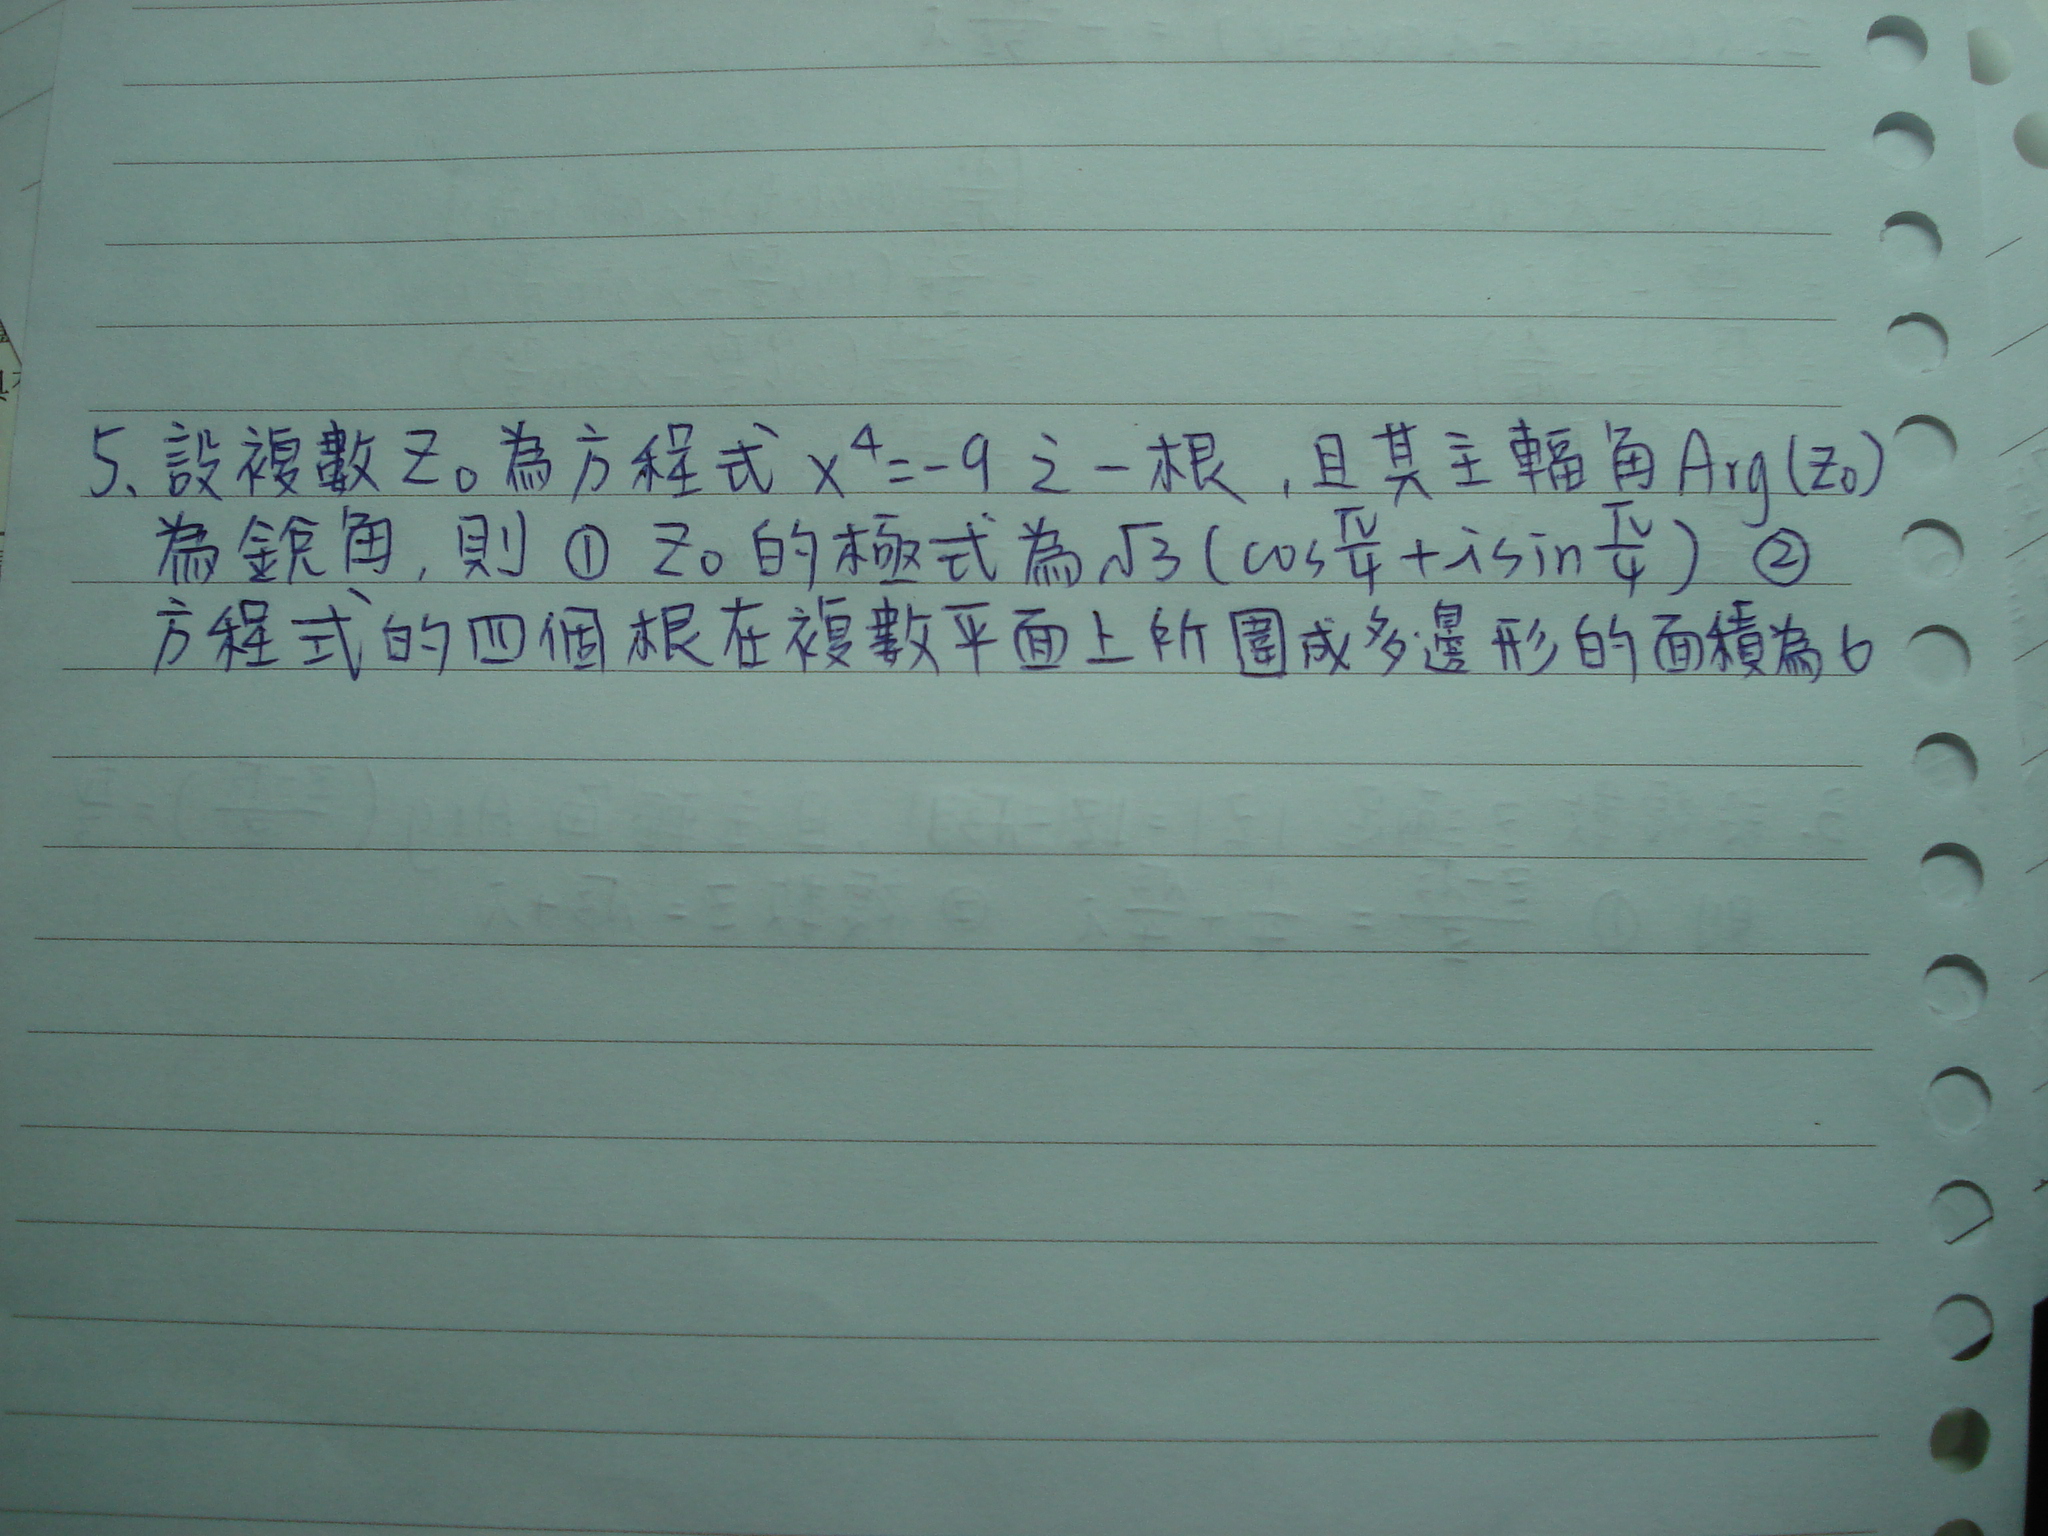 5、設複數Z₀為方程式 x⁴=-9 之一根,且其主輻角Arg(Z₀)
為銳角,則 ① Z₀的極式為√3(cosπ/4+isinπ/4) ②
方程式的四個根在複數平面上所圍成多邊形的面積為6